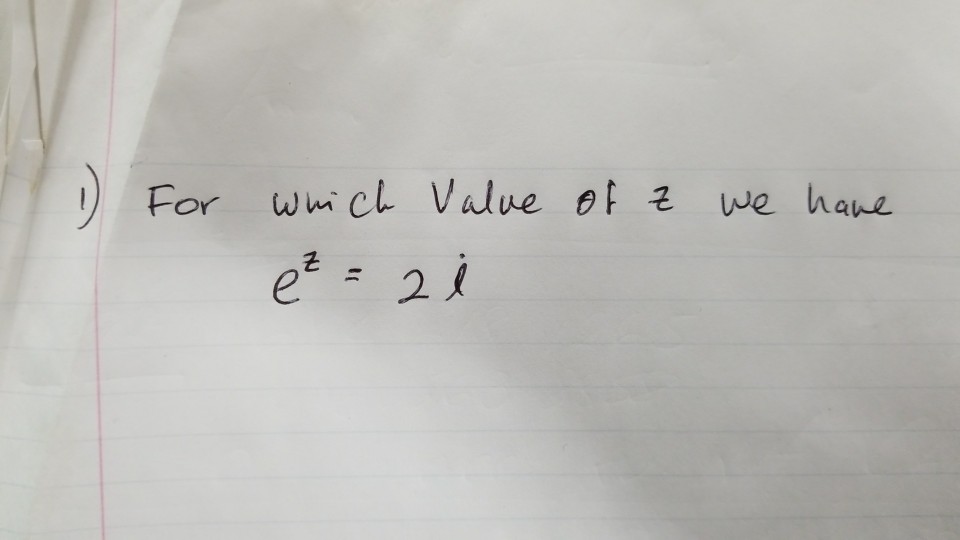 1) For which Value of z we have
e^z = 2i